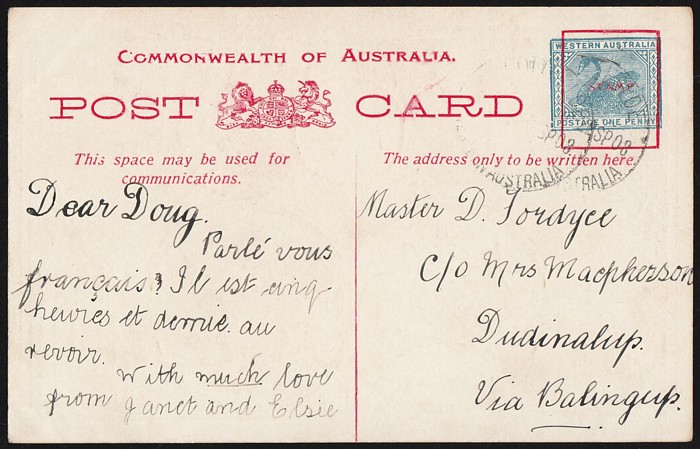 COMMONWEALTH OF AUSTRALIA.
POST CARD
WESTERN AUSTRALIA
STAMP
POSTAGE ONE PENNY
SP03
SP03
AUSTRALIA
TRALIA
This space may be used for
communications.
Dear Doug.
Parlé vous
français? Il est cinq
heures et demie. au
revoir.
With much love
from Janet and Elsie
The address only to be written here.
Master D. Fordyce
C/o Mrs Macpherson
Dudinalup.
Via Balingup.